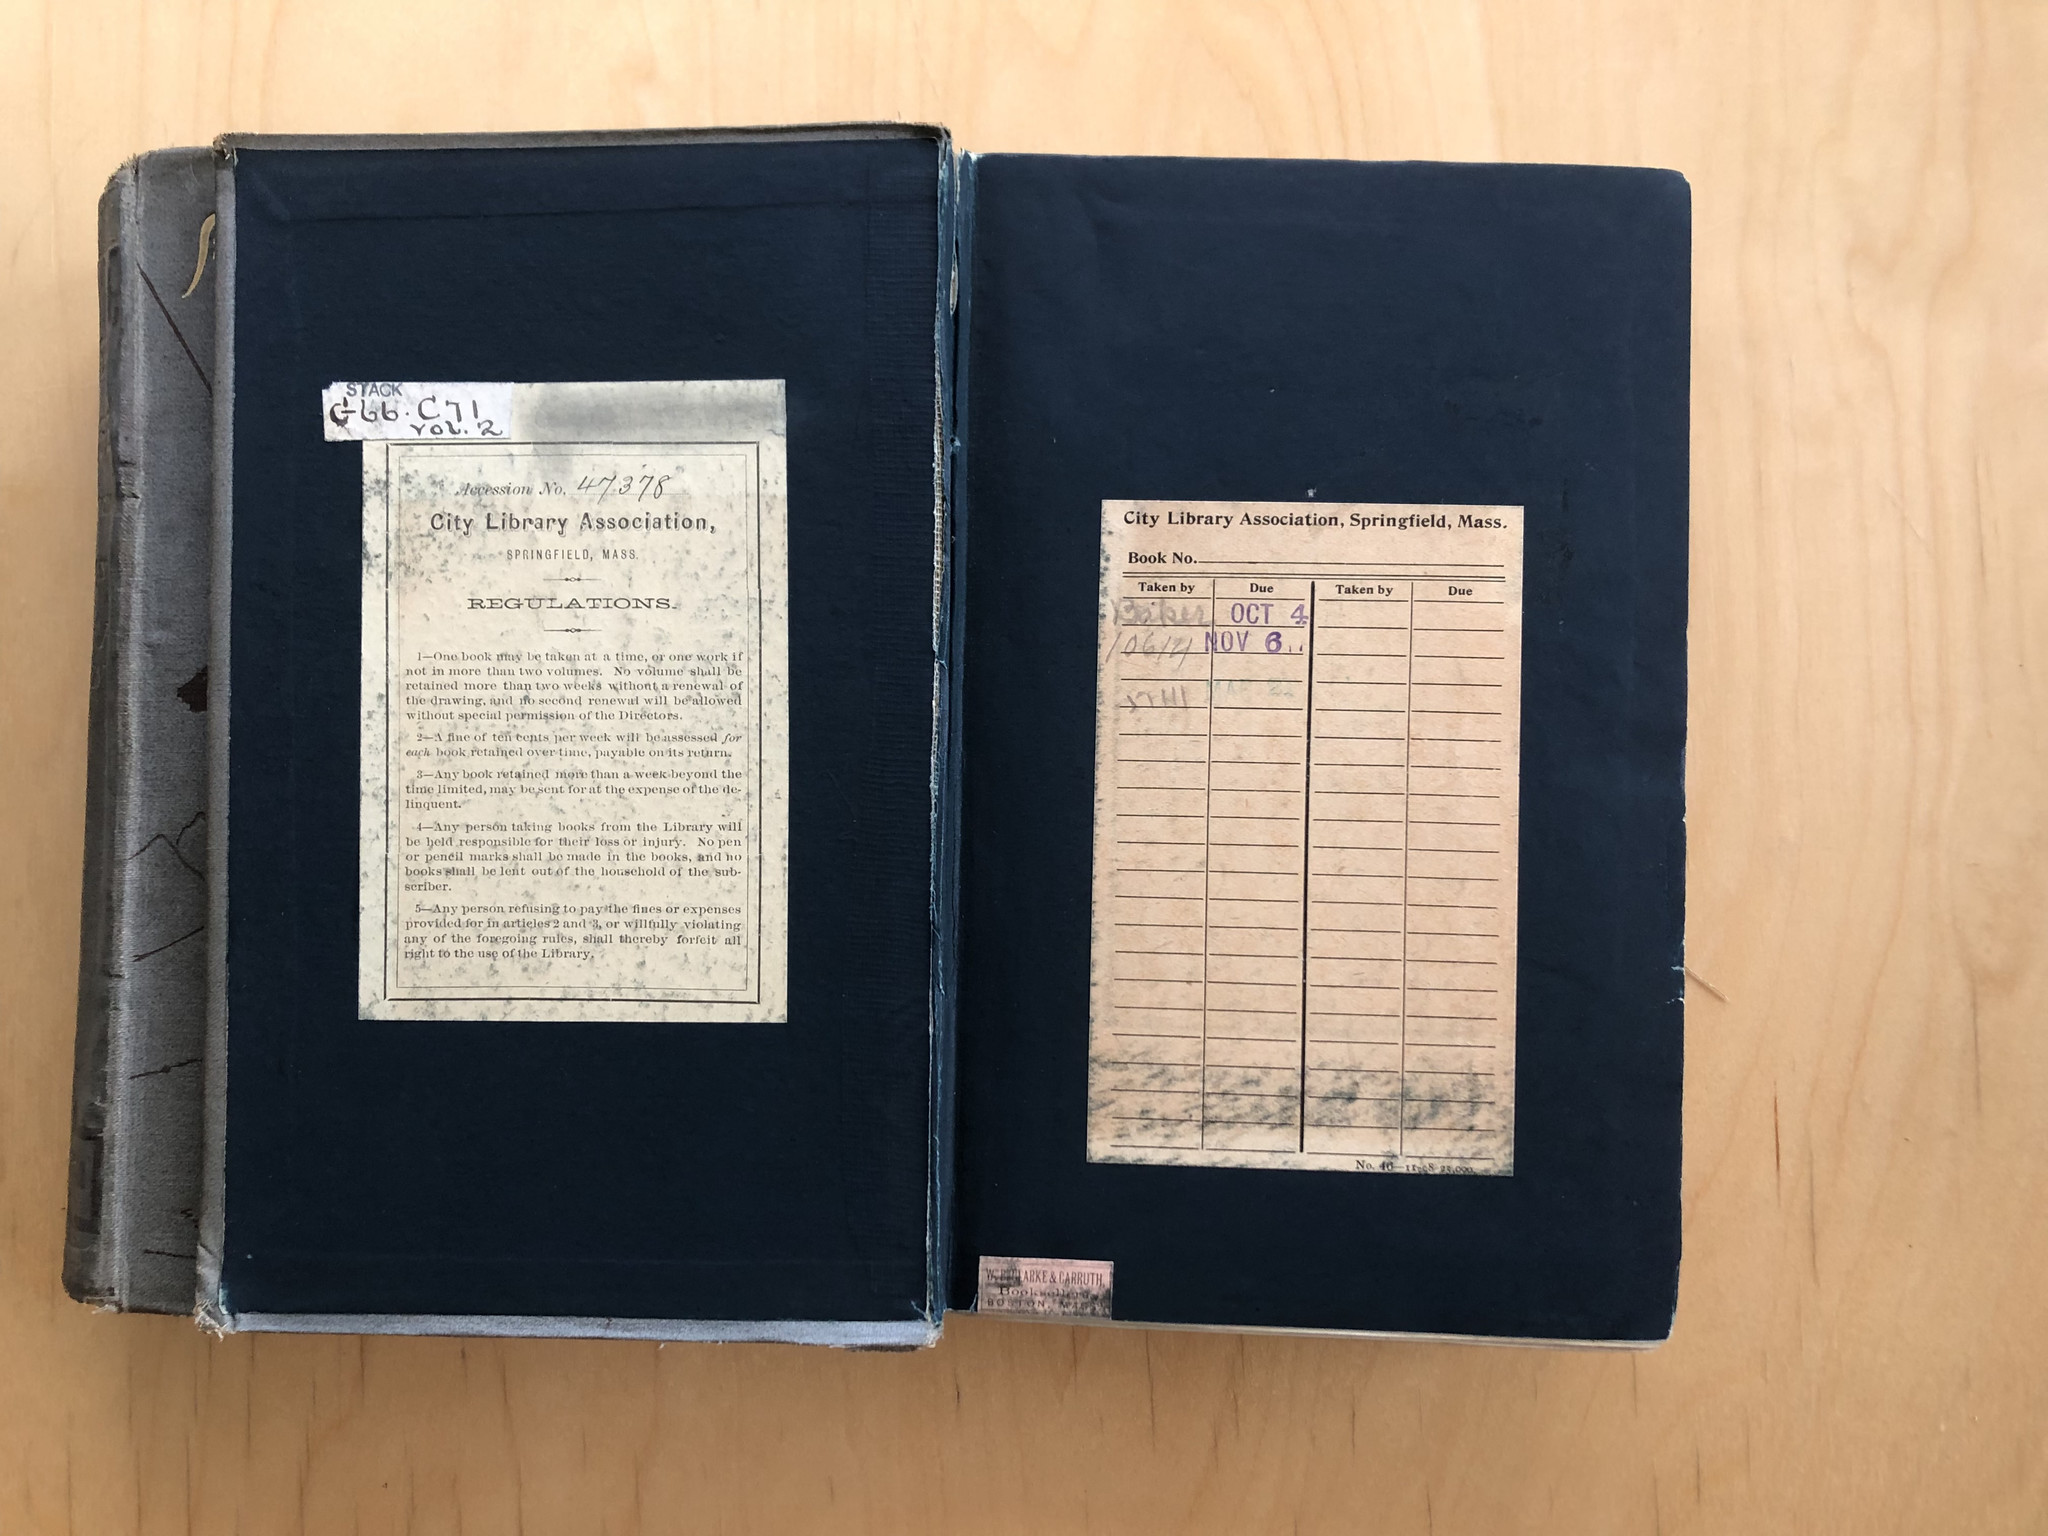 STACK
G66.C71
vol. 2
Accession No. 47378
City Library Association,
SPRINGFIELD, MASS.
REGULATIONS.
1—One book may be taken at a time, or one work if
not in more than two volumes. No volume shall be
retained more than two weeks without a renewal of
the drawing, and no second renewal will be allowed
without special permission of the Directors.
2—A fine of ten cents per week will be assessed for
each book retained over time, payable on its return.
3—Any book retained more than a week beyond the
time limited, may be sent for at the expense of the de-
linquent.
4—Any person taking books from the Library will
be held responsible for their loss or injury. No pen
or pencil marks shall be made in the books, and no
books shall be lent out of the household of the sub-
scriber.
5—Any person refusing to pay the fines or expenses
provided for in articles 2 and 3, or willfully violating
any of the foregoing rules, shall thereby forfeit all
right to the use of the Library.
City Library Association, Springfield, Mass.
Book No.
Taken by Due Taken by Due
Baker OCT 4
NOV 6
No. 46
CLARKE & CARRUTH,
Booksellers
BOSTON,